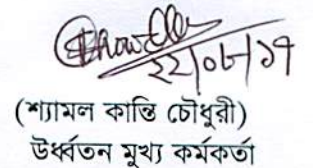 ২২/০৮/১৭
(শ্যামল কান্তি চৌধুরী)
উর্ধ্বতন মুখ্য কর্মকর্তা